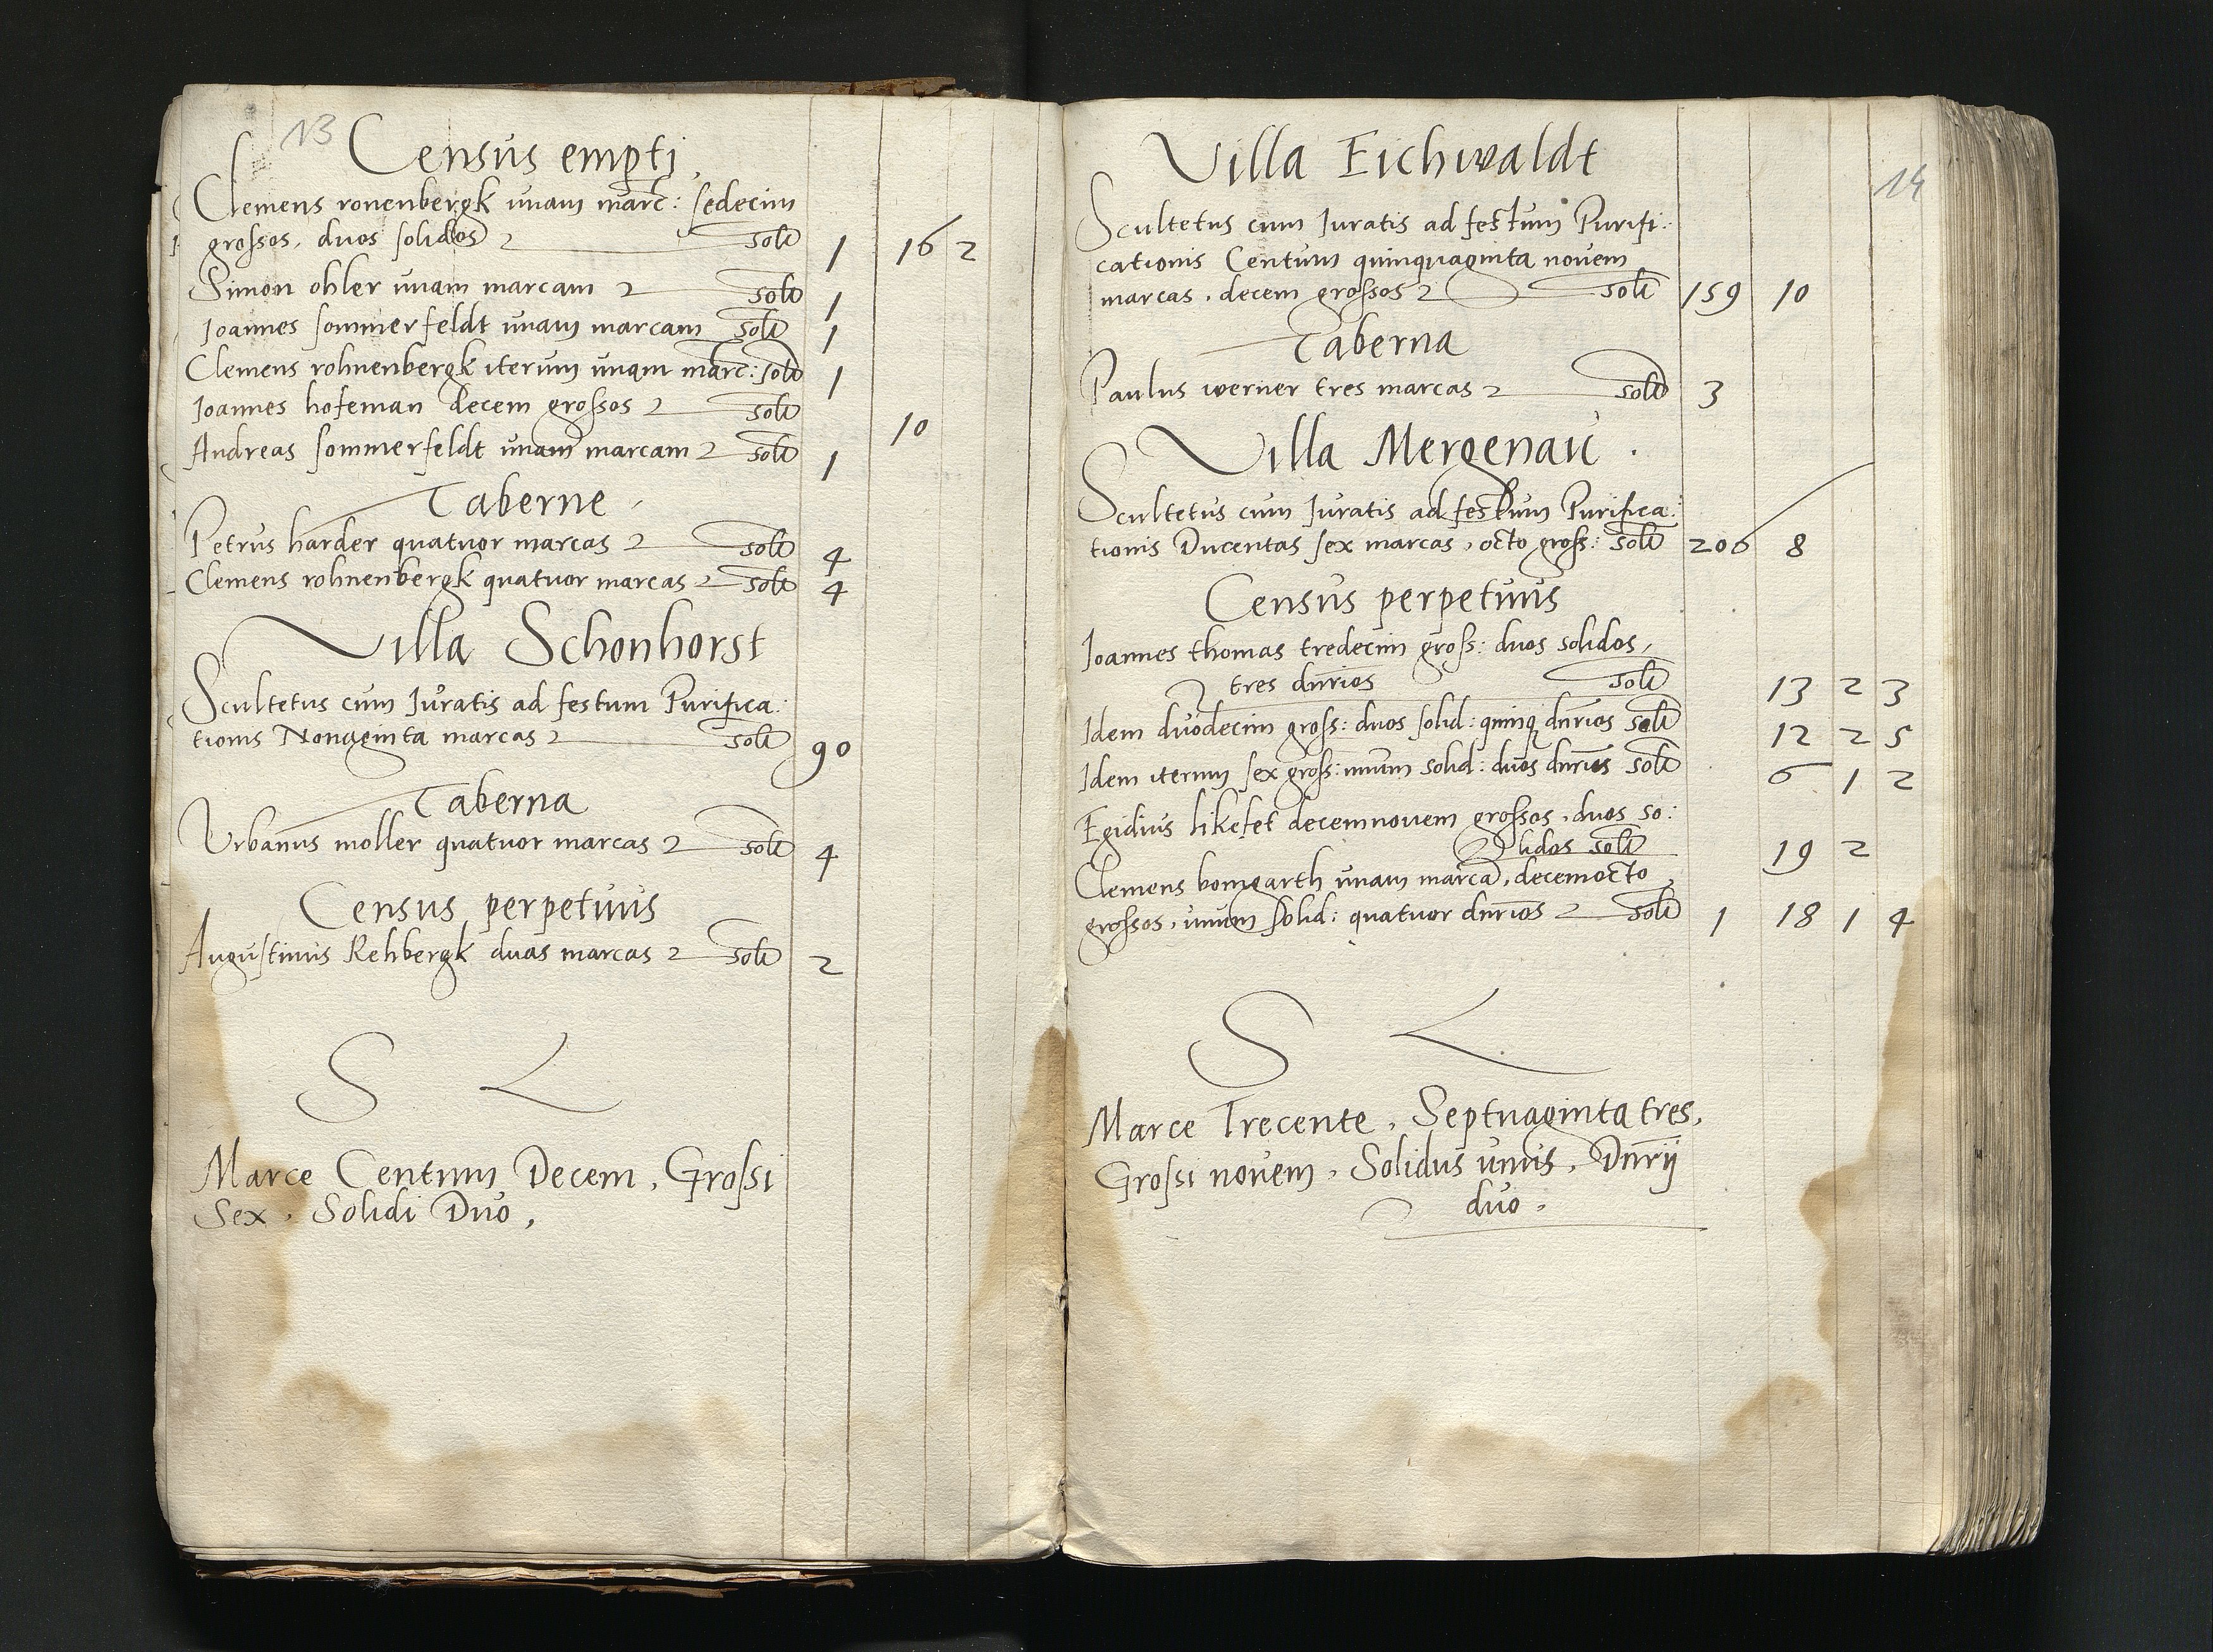 13
Census empti,
Clemens ronenbergk unam marc: sedecim
grossos, duos solidos solt 1 16 2
Simon ohler unam marcam solt 1
Ioannes sommerfeldt unam marcam solt 1
Clemens rohnenbergk iterum unam marc: solt 1
Ioannes hofeman decem grossos solt 10
Andreas sommerfeldt unam marcam solt 1
Taberne
Petrus harder quatuor marcas solt 4
Clemens rohnenbergk quatuor marcas solt 4
Villa Schonhorst
Scultetus cum Iuratis ad festum Purifica:
tionis Nonaginta marcas solt 90
Taberna
Urbanus moller quatuor marcas solt 4
Census perpetuus
Augustinus Rehbergk duas marcas solt 2
S L
Marce Centum Decem, Grossi
Sex, Solidi Duo,
14
Villa Eichwaldt
Scultetus cum Iuratis ad festum Purifi:
cationis Centum quinquaginta novem
marcas, decem grossos solt 159 10
Taberna
Paulus werner tres marcas solt 3
Villa Mergenau.
Scultetus cum Iuratis ad festum Purifica:
tionis Ducentas sex marcas, octo gross: solt 206 8
Census perpetuus
Ioannes thomas tredecim gross: duos solidos,
tres dnrios solt 13 2 3
Idem duodecim gross: duos solid: quinq dnrios solt 12 2 5
Idem iterum sex gross: unum solid: duos dnrios solt 6 1 2
Egidius likefet decemnovem grossos, duos so:
lidos solt 19 2
Clemens bomgarth unam marcā, decemocto
grossos, unum solid: quatuor dnrios solt 1 18 1 4
S L
Marce Trecente, Septuaginta tres,
Grossi novem, Solidus unus, Dnrij
duo.